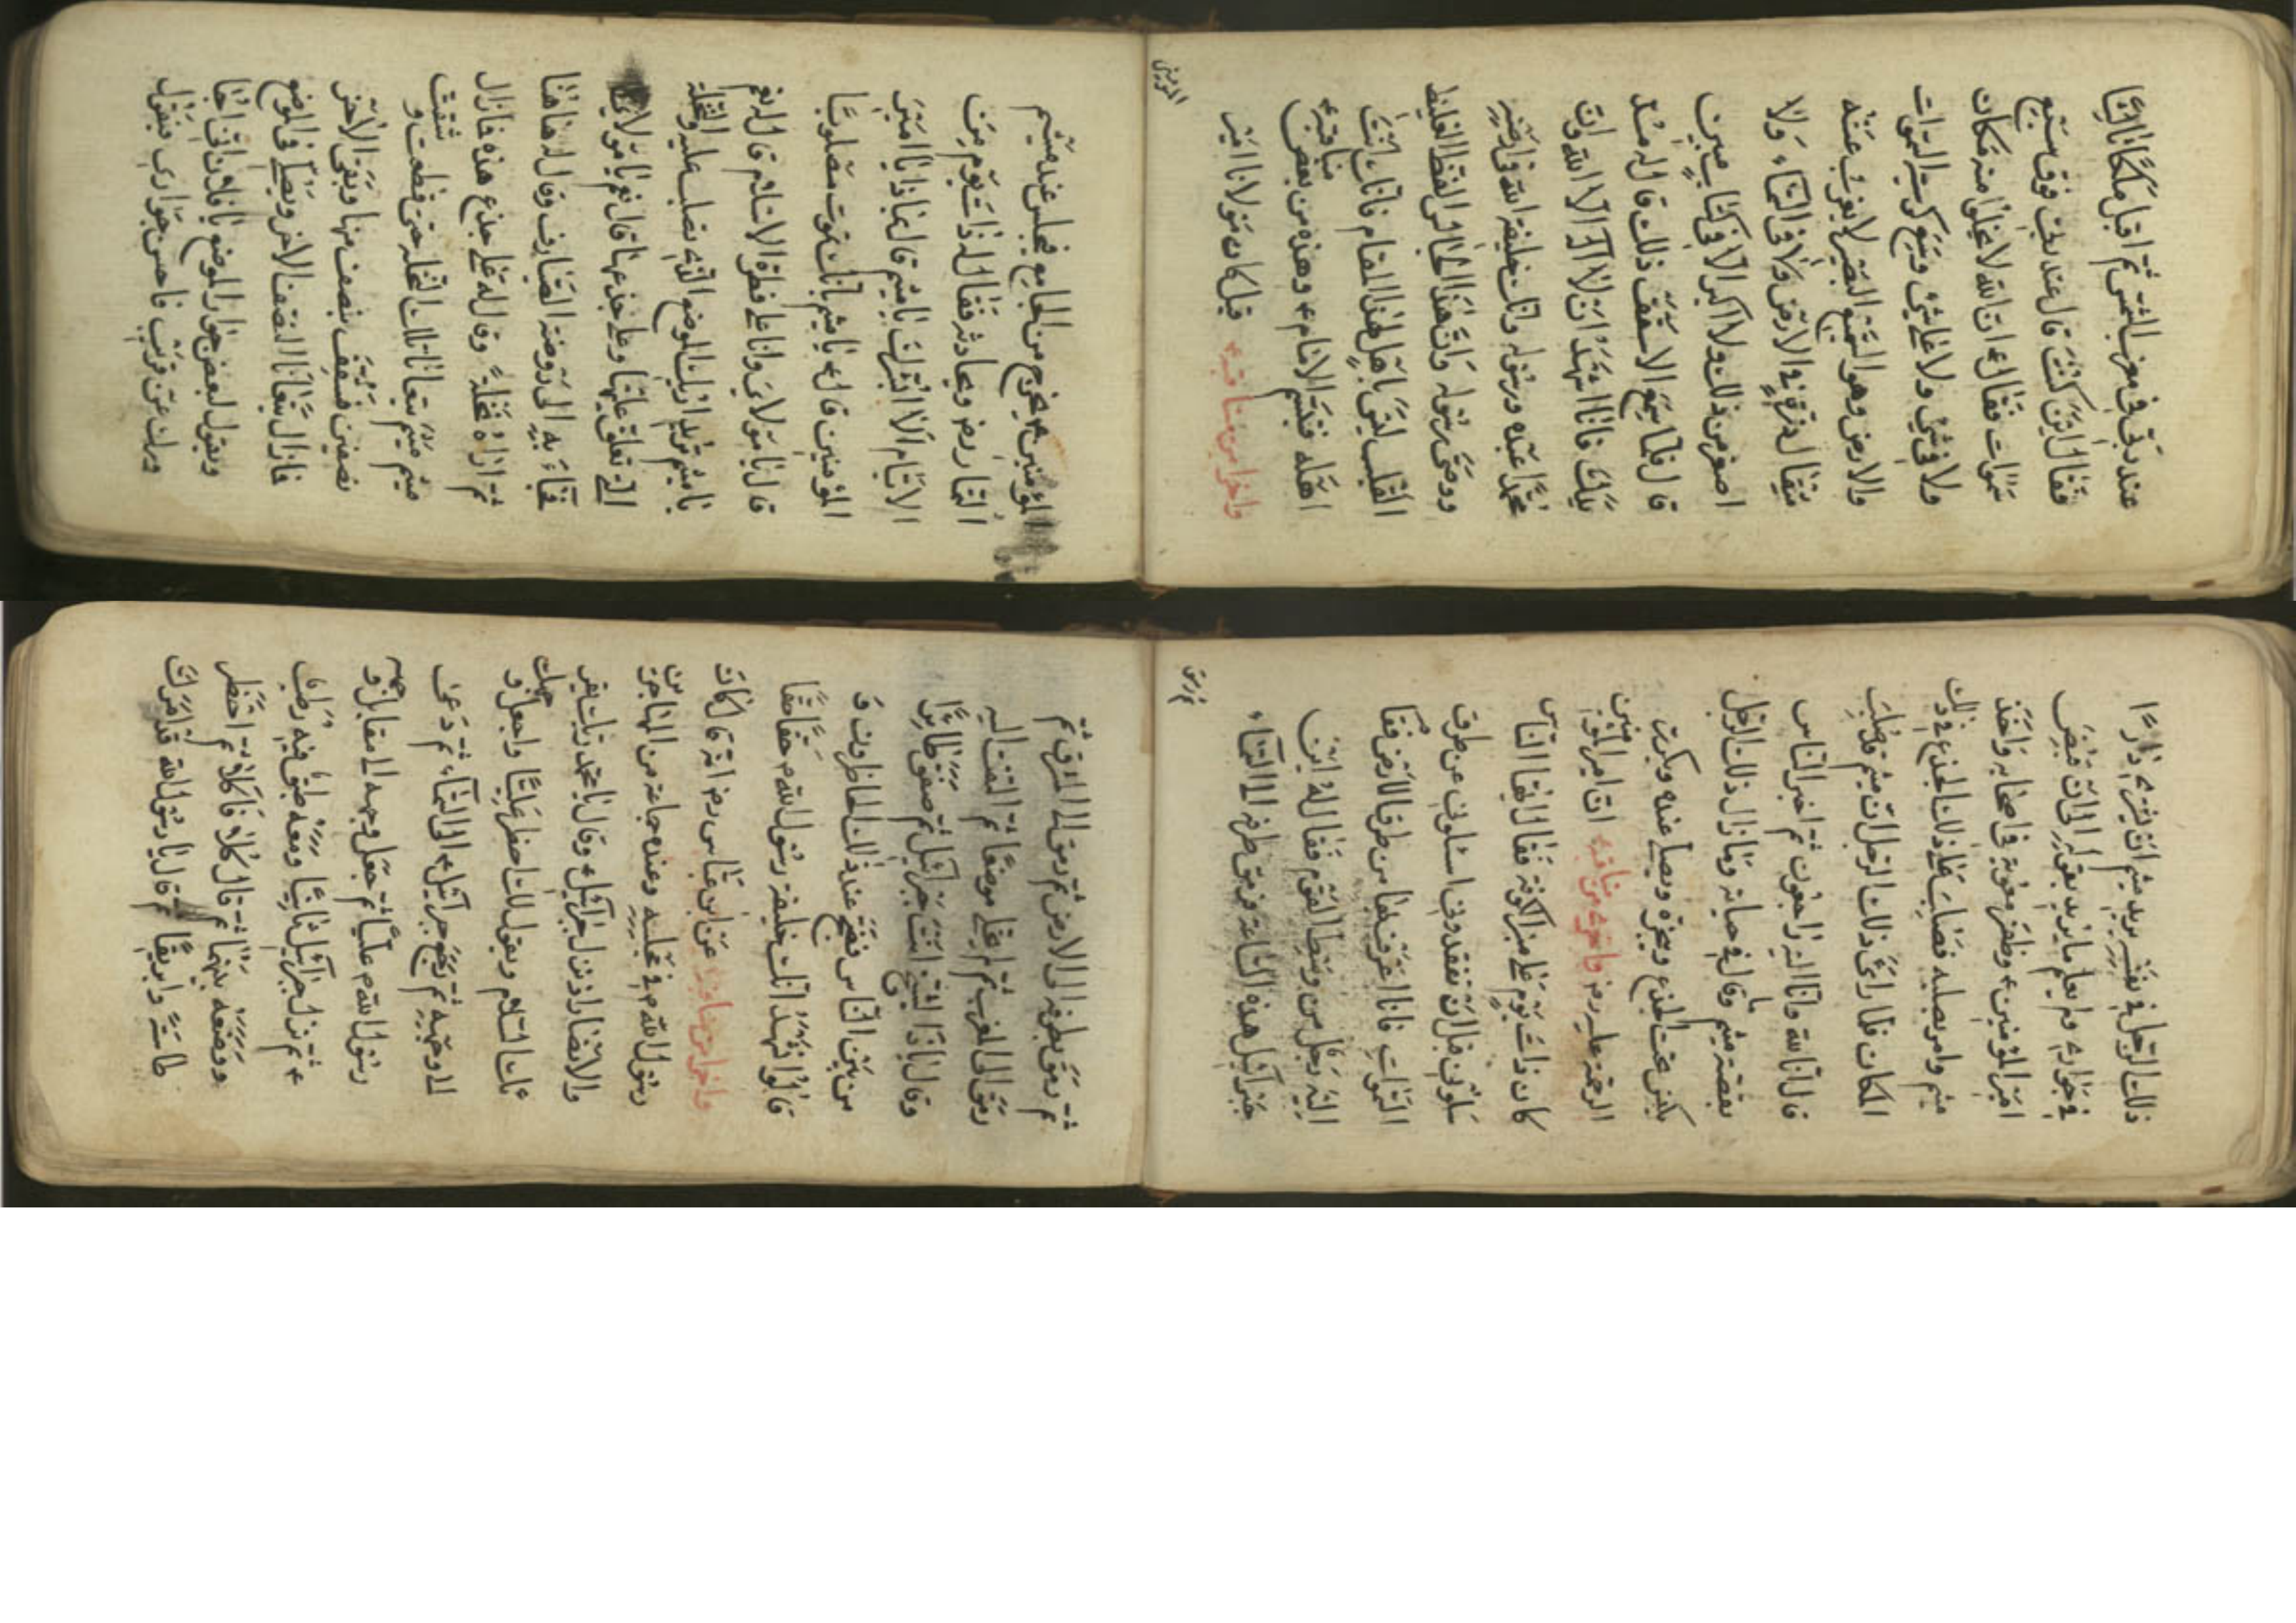 عند ربّي في مغرب الشمس ثم اقبل ملكًا ثالثًا
فقال اين كنت قال عند ربي فوق سبع
سموات فقال ع ان الله لا يخلوا منه مكان
ولا في شيء ولا على شيء وسع كرسيه السموات
والارض وهو السميع البصير لا يعزب عنه
مثقال ذرة في الارض ولا في السماء ولا
اصغر من ذلك ولا اكبر الا في كتاب مبين
قال فلما سمع الاسقف ذلك قال له مد
يدك فانا اشهد ان لا اله الا الله وان
محمدا عبده ورسوله وانك خليفة الله في ارضه
ووصي رسوله وان هذا الجالس الفظ الغليظ
القلب ليس باهل لهذا المقام فانك انت
اهله فتبسم الامام ع وهذه من بعض مناقبه
واخرا من مناقبه ع قيل كان مولانا امير
المومنين
المؤمنين ع يخرج من الجامع فيجلس عند ميثم
التمار رض ويحادثه فقال له ذات يوم من
الايام الا ابشرك يا ميثم قال بماذا يا امير
المؤمنين قال ع يا ميثم بانك تموت مصلوبا
قال يا مولاي وانا على فطرة الاسلام قال له نعم
يا ميثم تريد اريك الموضع الذي تصلب عليه والنخلة
التي تعلق عليها وعلى جذعها قال نعم يا مولاي
فجاء به الى روضة الصيارف وقال له هاهنا
ثم اراه نخلة وقال له على جذع هذه فمازال
ميثم يتعاهد تلك النخلة حتى قطعت وشقت
نصفين فسقف بنصف منها وبقي الاخر
فمازال يتعاهد النصف الاخر ويصلي في الموضع
ويقول لبعض جوار الموضع يا فلان اني اجا
ورك عن قريب فاحسن جواري فيقول
ذلك الرجل في نفسه يريد ميثم ان يشتري دارًا
في جواري ولم يعلم ما يريد بقوله الى ان قبض
امير المؤمنين ع وظفر معوية في اصحابه واخذ
ميثم وامر بصلبه فصلب على ذلك الجذع في ذلك
المكان فلما راى ذلك الرجل ان ميثم قد صلب
قال انا لله وانا اليه راجعون ثم اخبر الناس
بقصة ميثم وما قال في حياته وما زال ذلك الرجل
يكنس تحت الجذع ويبخره ويصلي عنده ويكرر
الرحمة عليه رض واخرى من مناقبه ان امير المؤمنين
كان ذات يوم على منبر الكوفة فقال ايها الناس
سلوني قبل ان تفقدوني اسالوني عن طرق
السموات فانا اعرف بها من طرق الارض فقام
اليه رجل من وسط القوم فقال له اين
جبرائيل هذه الساعة فرمق طرفه الى السماء
ثم رمق
ثم رمق بطرفه الى الارض ثم رمق الى المشرق ثم
رمق الى المغرب ثم لم يخلي موضعا ثم التفت اليه
وقال يا ذا الشيخ انت جبرائيل ثم صفق طائرا
من بين الناس فضج عند ذلك الحاظرون و
قالوا نشهد انك خليفة رسول الله ص حقا حقا
واخرا من مناقبه ع عن ابن عباس رض انه قال كان
رسول الله ص في مجلسه وعنده جماعة من المهاجرين
والانصار اذ نزل جبرائيل ع وقال يا محمد ربك يقر
ئك السلام ويقول لك احضر عليا واجعل وجهك
الى وجهه ثم رجع جبرائيل ع الى السماء ثم دعى
رسول الله ص عليا ثم جعل وجهه الى مقابل وجهه
ثم نزل جبرائيل ثانيا ومعه طبق فيه رطب
ووضعه بينهما ثم قال كلا فاكلا ثم احضر
طاسة وابريقا ثم قال يا رسول الله قد امرك